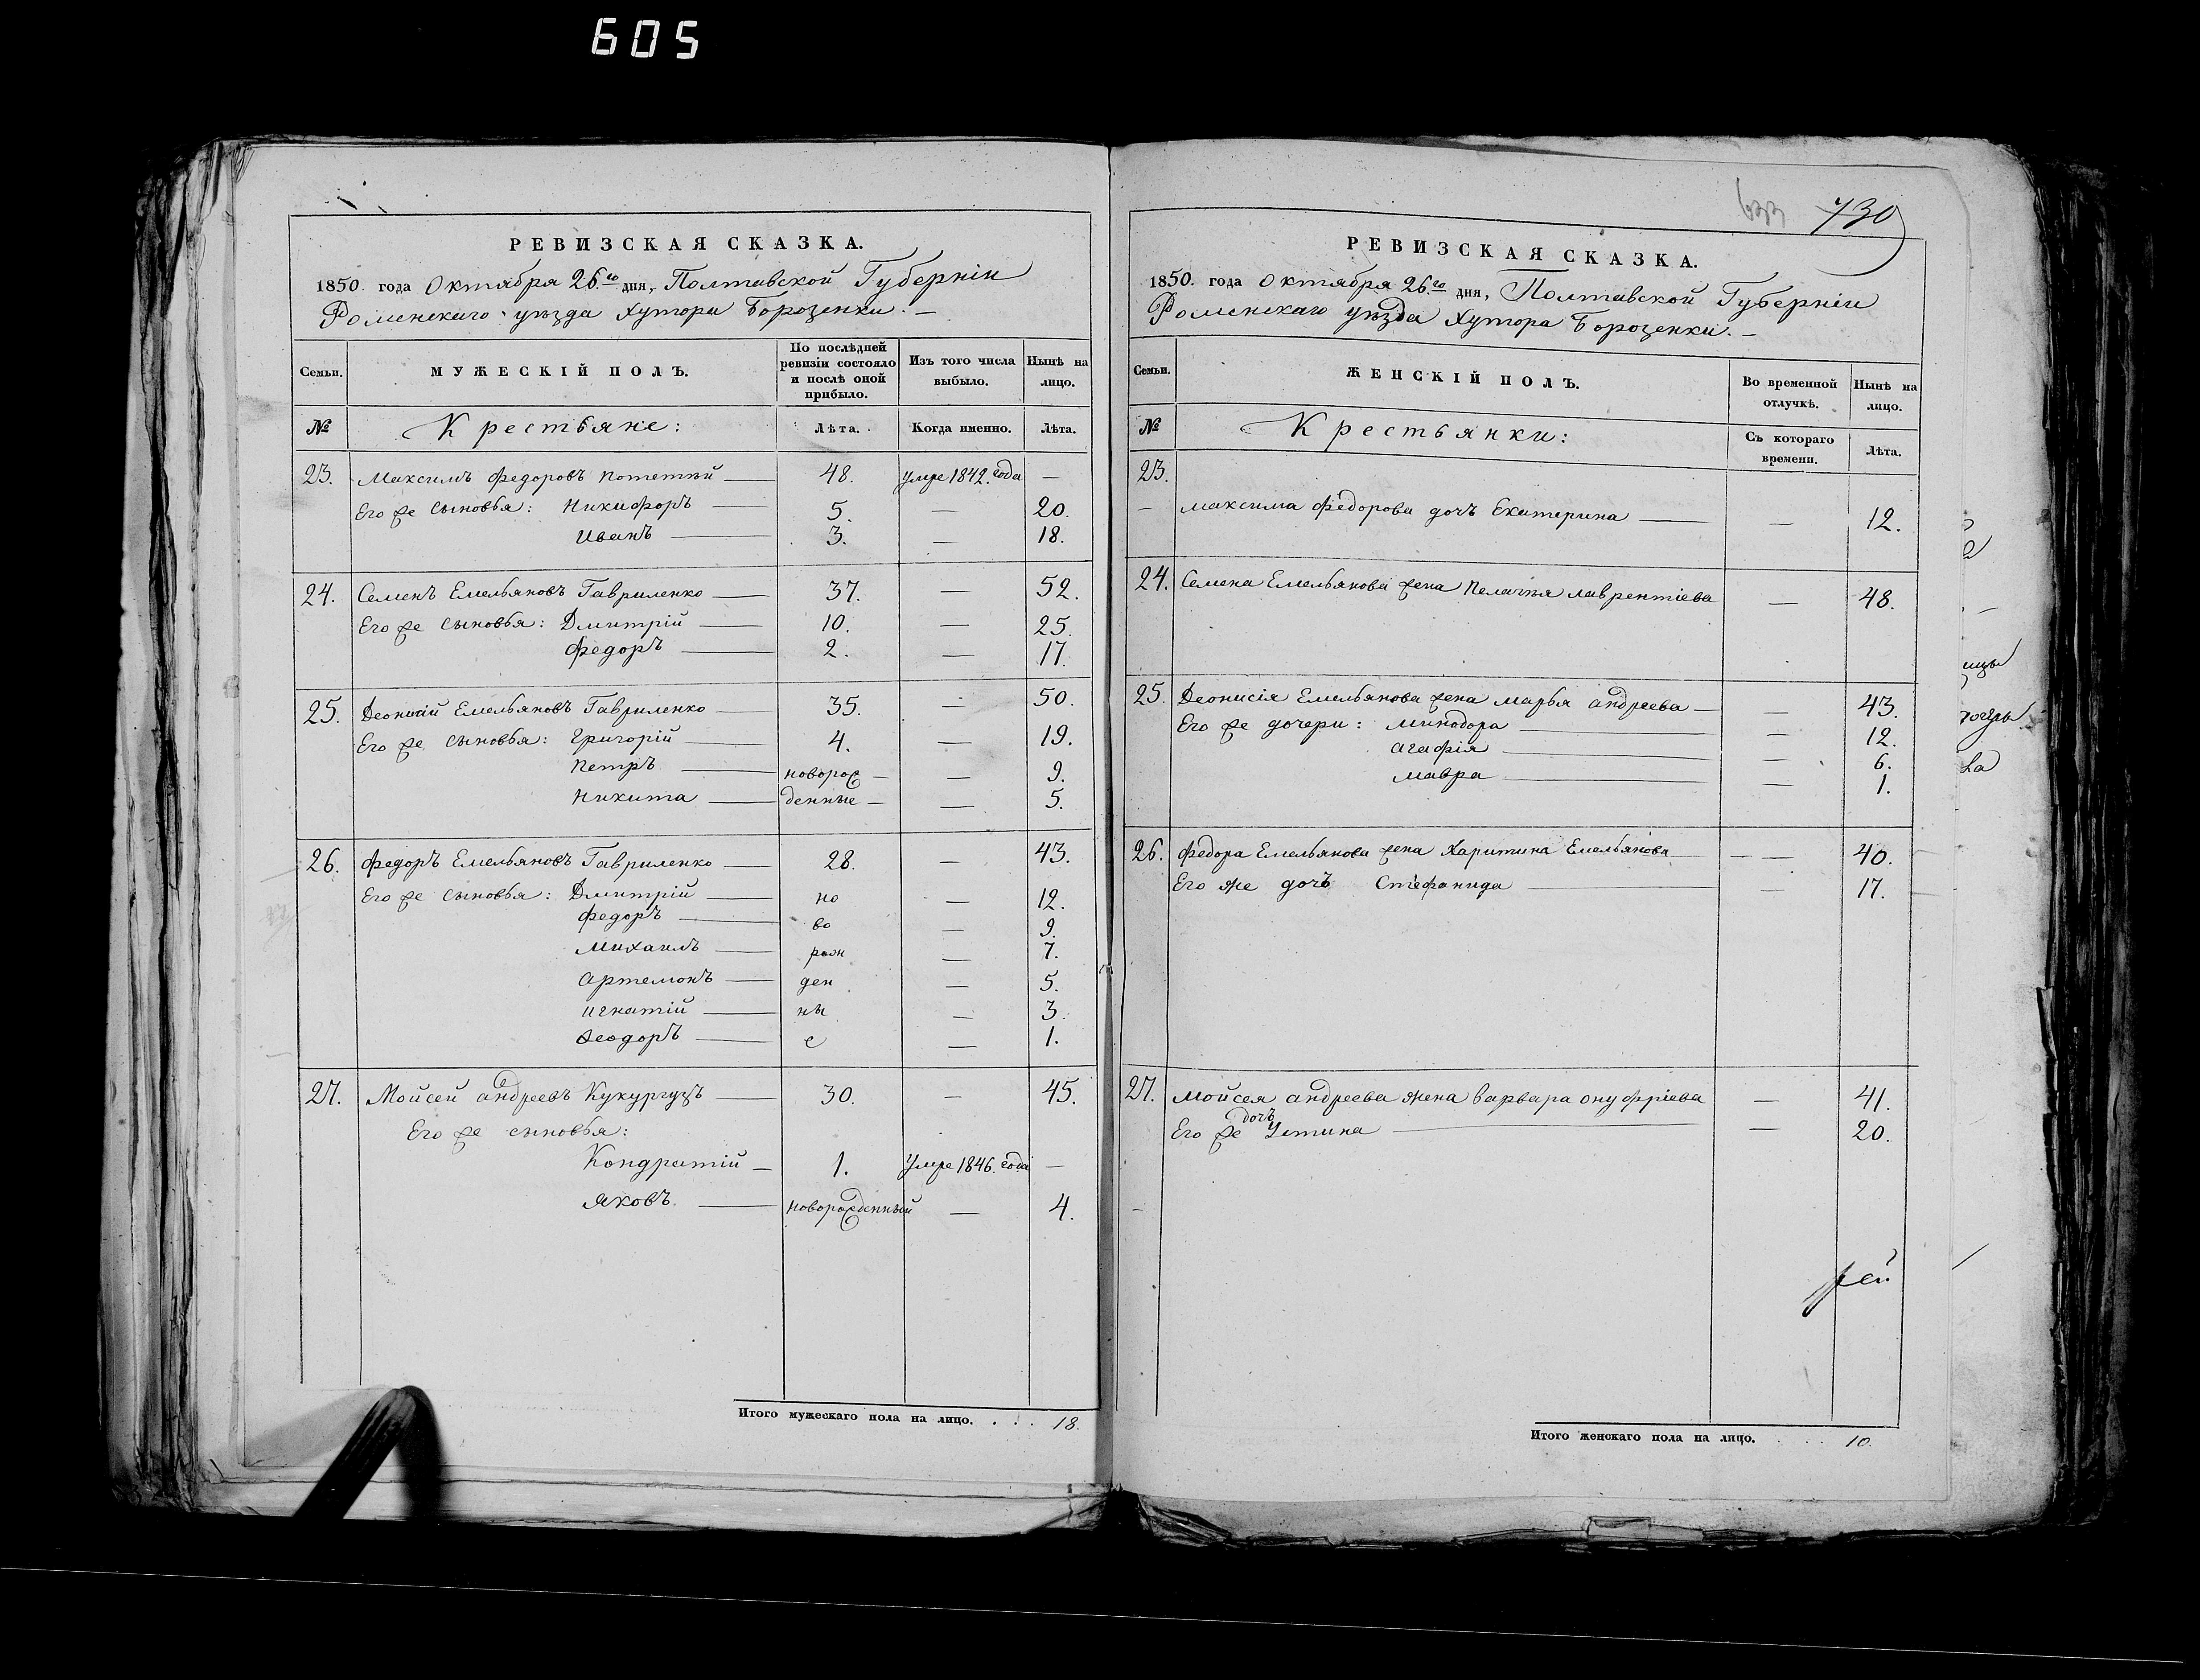 605
РЕВИЗСКАЯ СКАЗКА.
1850. года Октября 26.го дня, Полтавской Губерніи
Роменскаго уѣзда Хутора Борозенки. —
Семьи.
МУЖЕСКІЙ ПОЛЪ.
По послѣдней ревизіи состояло и послѣ оной прибыло.
Изъ того числа выбыло.
Нынѣ на лицо.
№ Крестьяне: Лѣта. Когда именно. Лѣта.
23. Максимъ Федоровъ — 48. умре 1842. года —
Его же сыновья: Никифоръ — 5. — 20.
Иванъ — 3. — 18.
24. Семенъ Емельяновъ Гавриленко — 37. — 52.
Его же сыновья: Дмитрій — 10. — 25.
Федоръ — 2. — 17.
25. Деонисій Емельяновъ Гавриленко — 35. — 50.
Его же сыновья: Григорій — 4. — 19.
Петръ — новорож — — 9.
Никита — денные — — 5.
26. Федоръ Емельяновъ Гавриленко — 28. — 43.
Его же сыновья: Дмитрій — но — 12.
Федоръ — во — 9.
Михаилъ — рож — 7.
Артемонъ — ден — 5.
Игнатій — ны — 3.
Феодоръ — е — 1.
27. Мойсей Андреевъ — 30. — 45.
Его же сыновья:
Кондратій — 1. Умре 1846. года —
Яковъ. — новорожденный — 4.
Итого мужескаго пола на лицо. . . . 18.
730
РЕВИЗСКАЯ СКАЗКА.
1850. года Октября 26.го дня, Полтавской Губерніи
Роменскаго уѣзда Хутора Борозенки. —
Семьи.
ЖЕНСКІЙ ПОЛЪ.
Во временной отлучкѣ.
Нынѣ на лицо.
№ Крестьянки: Съ котораго времени. Лѣта.
23.
— Максима Федорова дочь Екатерина — — 12.
24. Семена Емельянова жена Пелагія Лаврентіева — 48.
25. Деонисія Емельянова жена Марья Андреева — — 43.
Его же дочери: Минодора — — 12.
Агафія — — 6.
Мавра — — 1.
26. Федора Емельянова жена Харитина Емельянова — — — 40.
Его же дочь Стефанида — — 17.
27. Мойсея Андреева жена Варвара Онуфріева — 41.
Его же дочь Устина — — 20.
Итого женскаго пола на лицо. . . . 10.